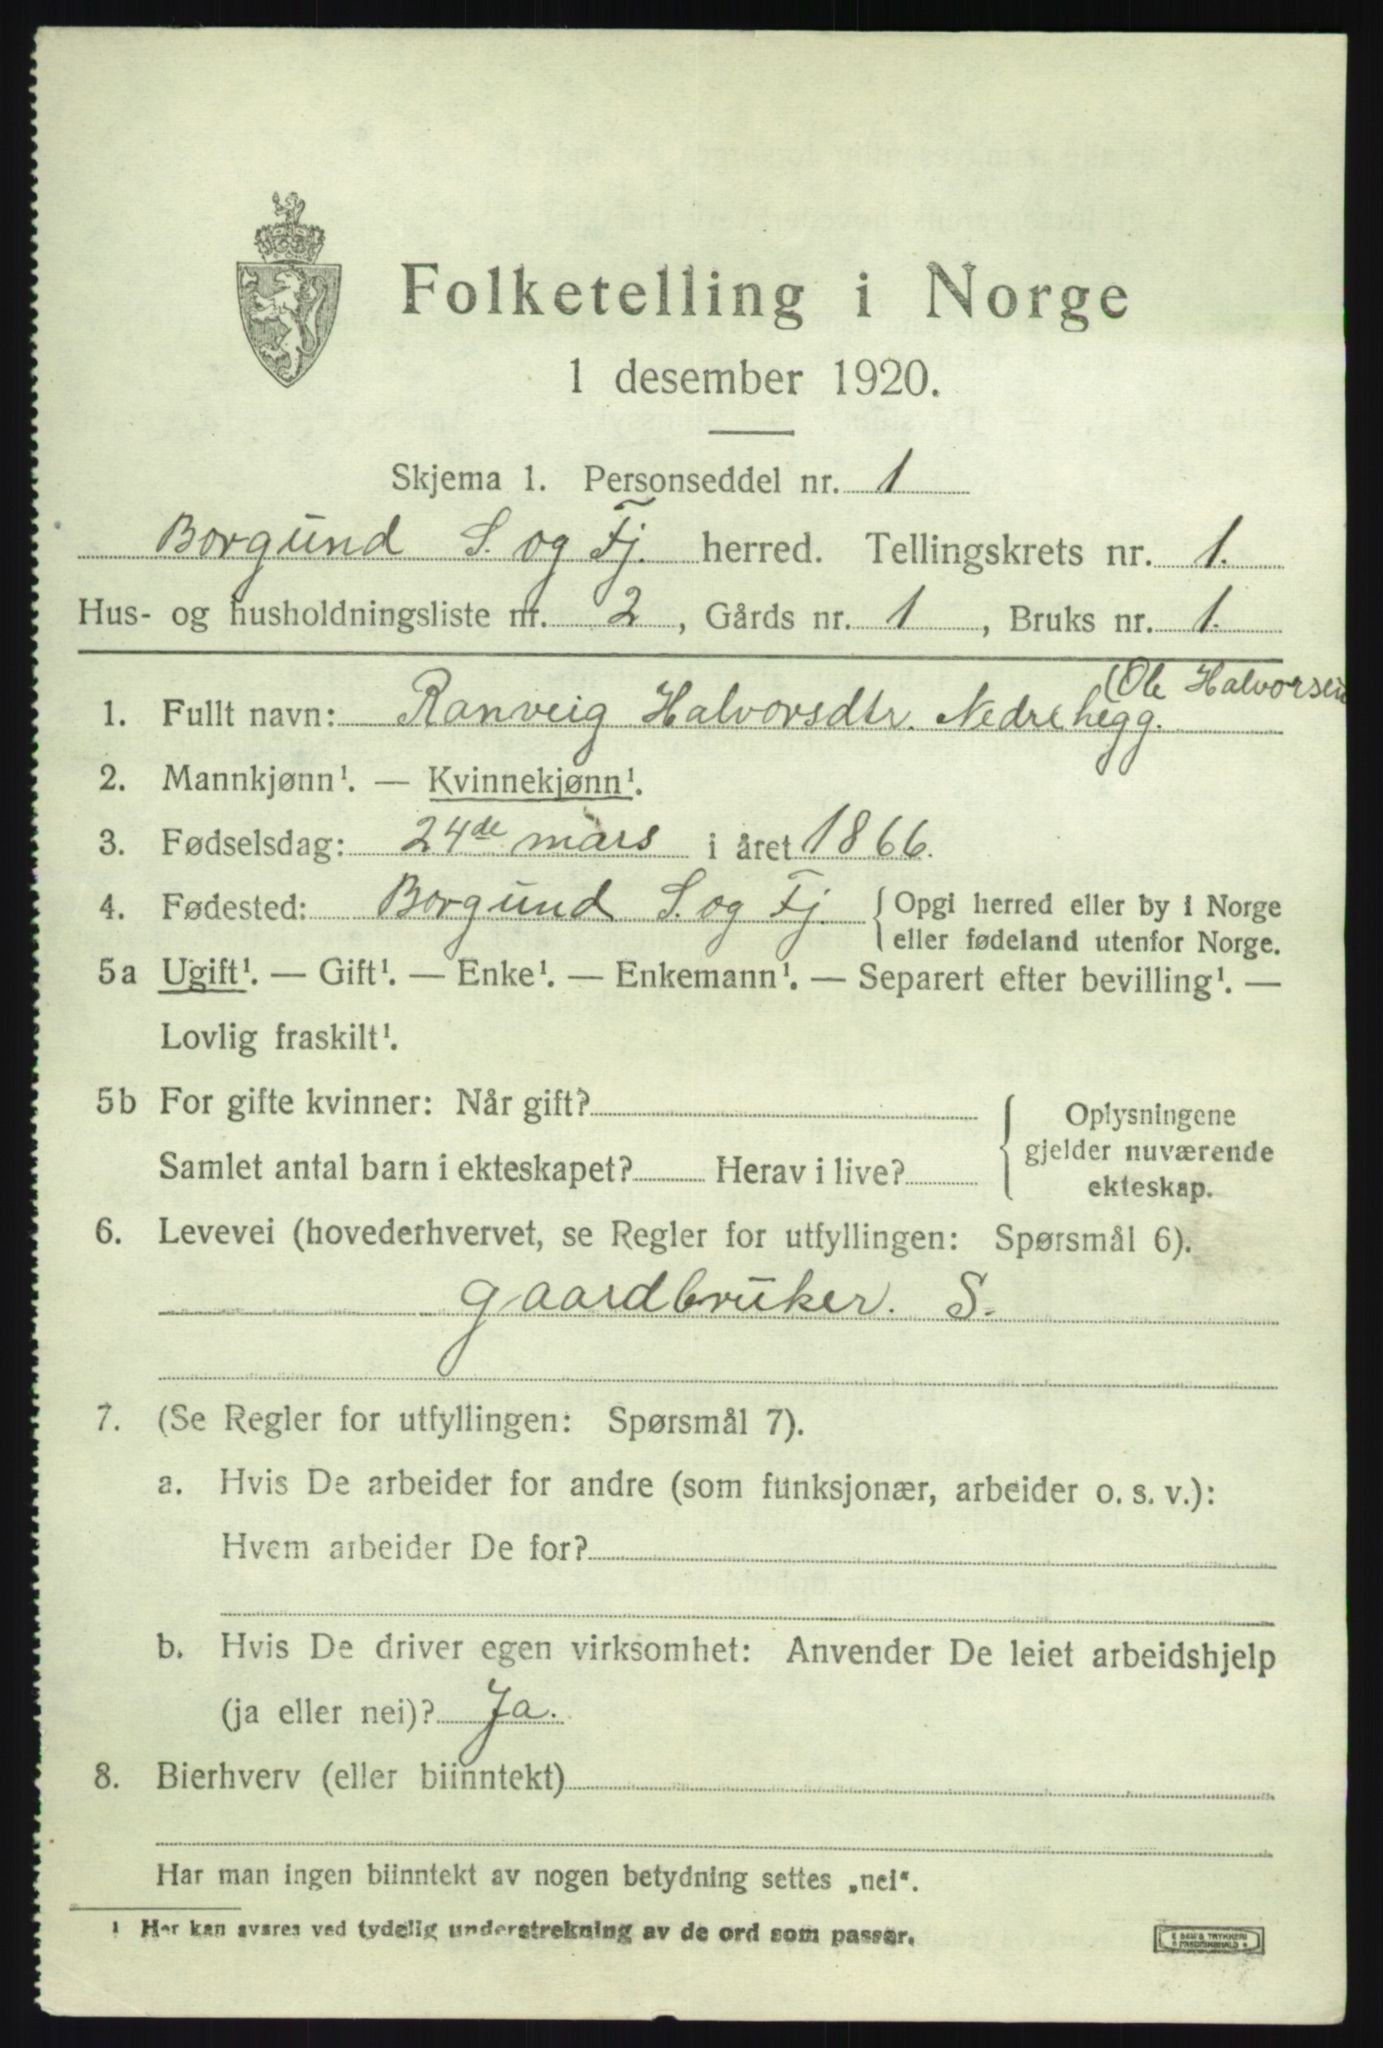 Folketelling i Norge
1 desember 1920.
Skjema 1. Personseddel nr. 1
Borgund S. og Fj. herred. Tellingskrets nr. 1.
Hus- og husholdningsliste nr. 2, Gårds nr. 1, Bruks nr. 1.
(Ole Halvorsen
1. Fullt navn: Ranveig Halvorsdtr. Nedrehegg.
2. Mannkjønn¹. — Kvinnekjønn¹.
3. Fødselsdag: 24de mars i året 1866.
4. Fødested: Borgund S. og Fj. { Opgi herred eller by i Norge
eller fødeland utenfor Norge.
5a Ugift¹. — Gift¹. — Enke¹. — Enkemann¹. — Separert efter bevilling¹. —
Lovlig fraskilt¹.
5b For gifte kvinner: Når gift?
Oplysningene
gjelder nuværende
ekteskap.
Samlet antal barn i ekteskapet? Herav i live?
6. Levevei (hovederhvervet, se Regler for utfyllingen: Spørsmål 6).
gaardbruker. S.
7. (Se Regler for utfyllingen: Spørsmål 7).
a. Hvis De arbeider for andre (som funksjonær, arbeider o. s. v.):
Hvem arbeider De for?
b. Hvis De driver egen virksomhet: Anvender De leiet arbeidshjelp
(ja eller nei)? Ja.
8. Bierhverv (eller biinntekt)
Har man ingen biinntekt av nogen betydning settes „nei“.
¹ Her kan svares ved tydelig understrekning av de ord som passer.